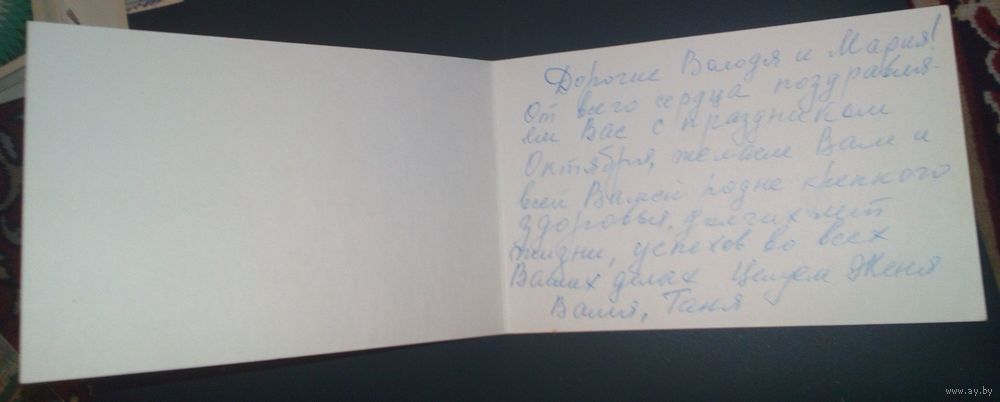 Дорогие Володя и Мария!
От всего сердца поздравля-
ем Вас с праздником
Октября, желаем Вам и
всей Вашей родне крепкого
здоровья, долгих лет
жизни, успехов во всех
Ваших делах Целуем Женя
Валя, Таня
www.ay.by